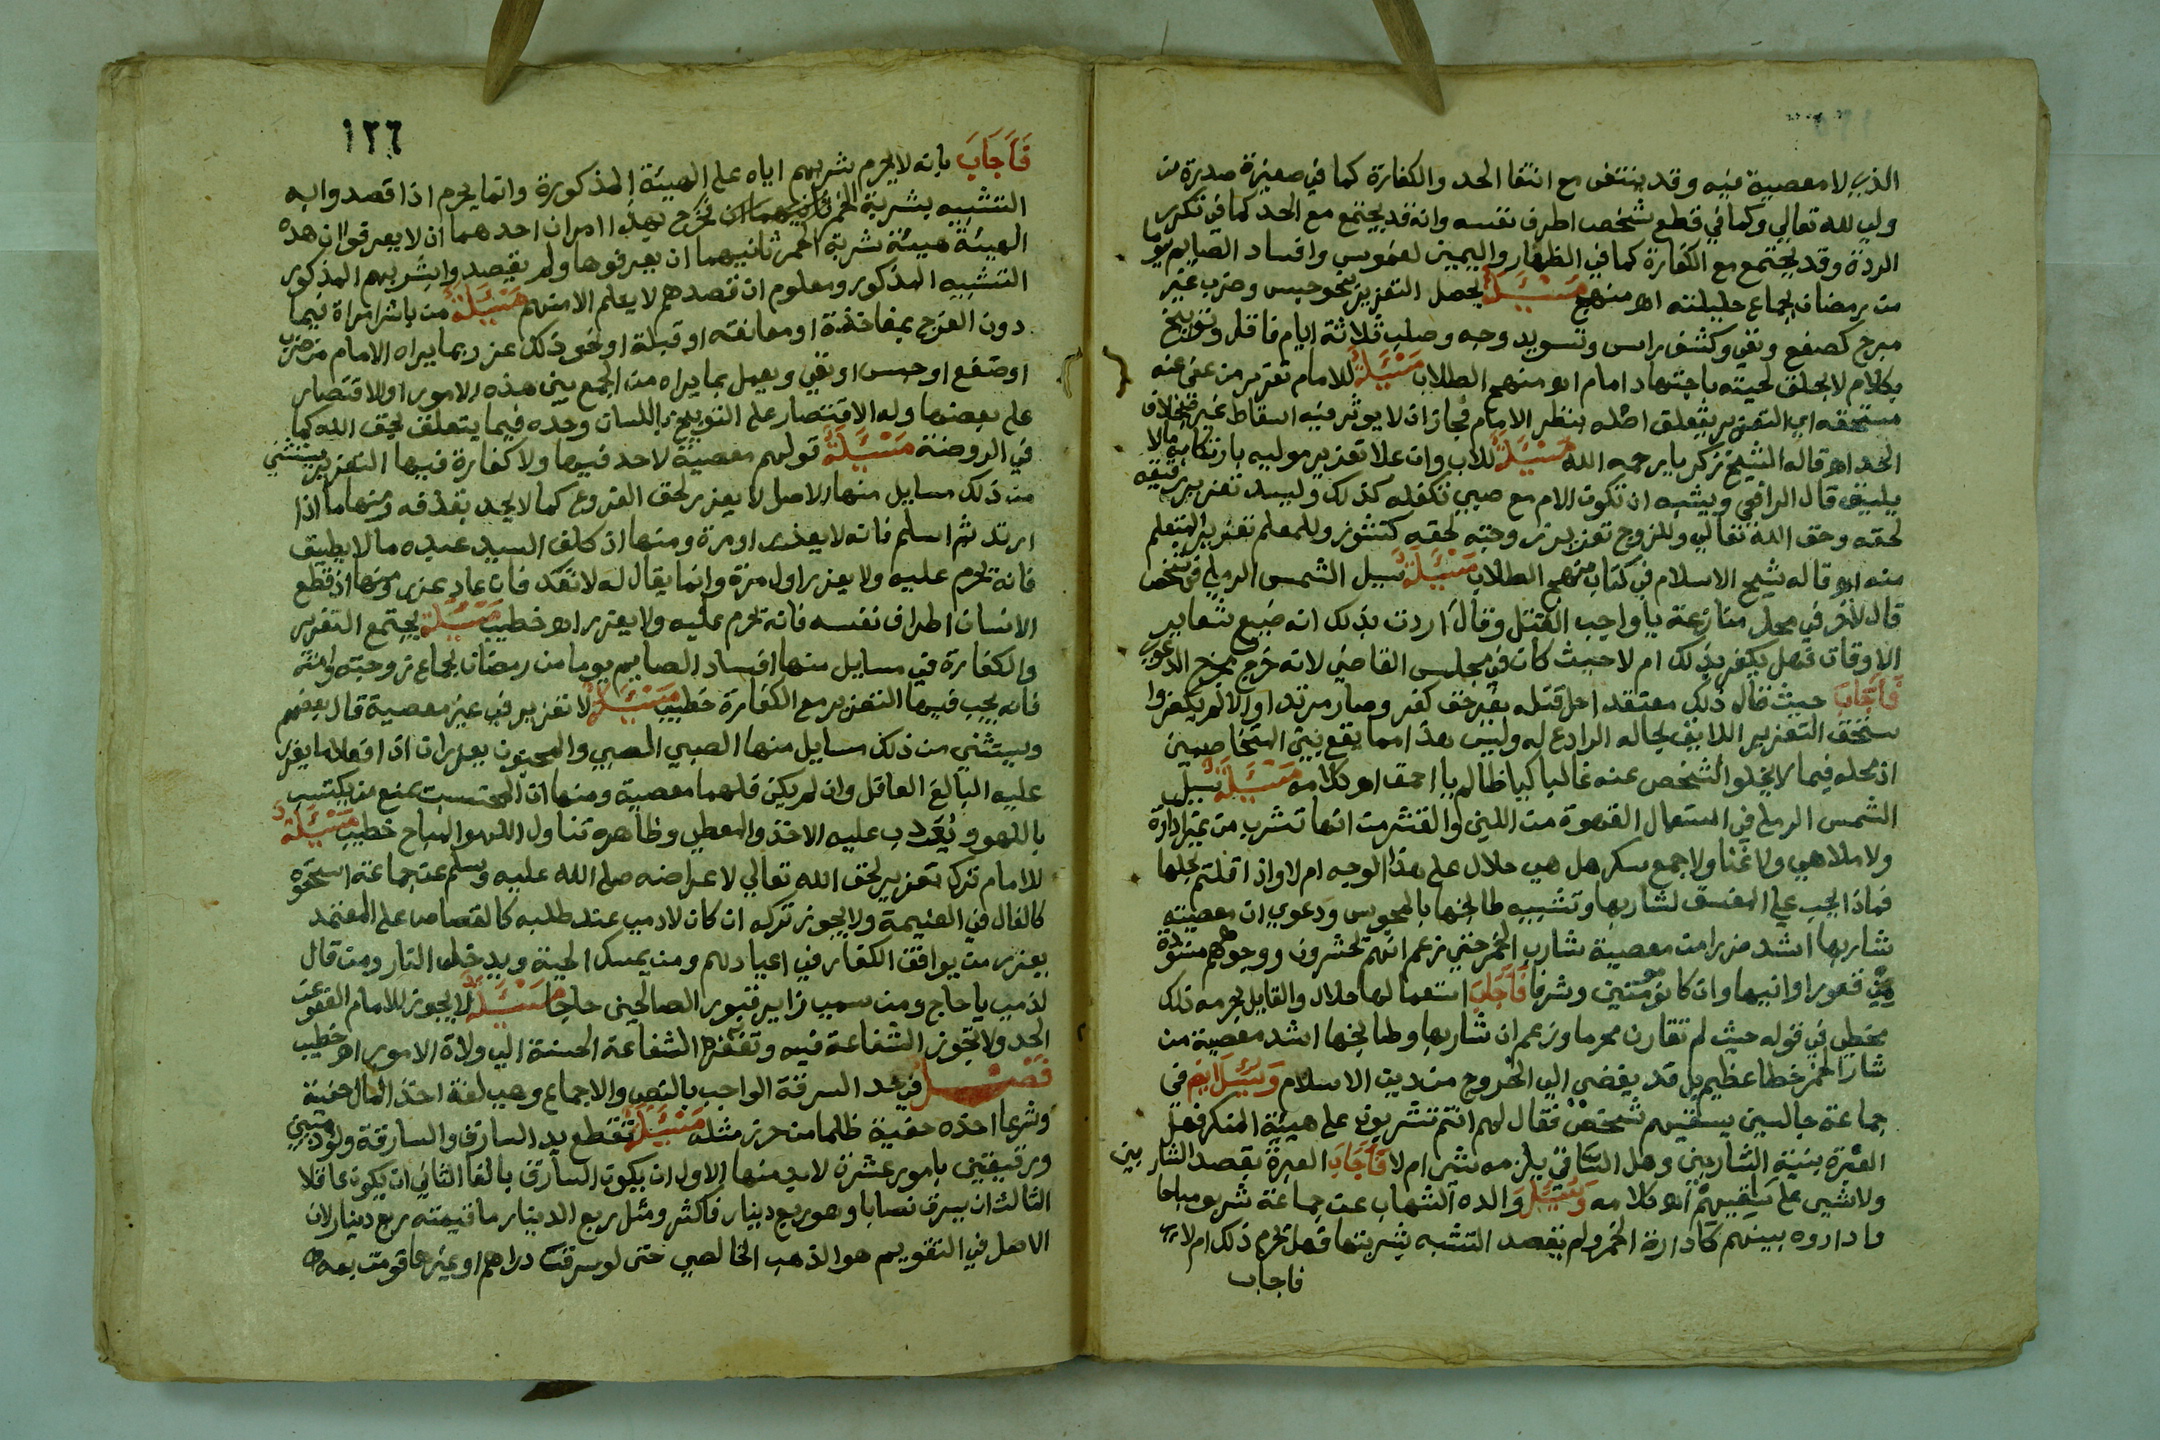 الذي لا معصية فيه وقد ينتفى مع انتفا الحد والكفارة كما في صغيرة صدرة من
ولي لله تعالي وكما في قطع شخص اطرف نفسه وانه قد يجتمع مع الحد كما في تكرر
الردة وقد يجتمع مع الكفارة كما في الظهار واليمين لغموس وافساد الصايم يوما
من رمضان بجماع حليلته اه منهج مسئيلة يحصل التعزير بنحو حبس وضرب غير
مبرح كصفع ونفي وكشف راس وتسويد وجه وصلب ثلاثة ايام فاقل وتوبيخ
بكلام لا بحلق لحيته باجتهاد امام اه منهج الطلاب مسئيلة للامام تعزير من عفى عنه
مستحقه اي التعزير يتعلق اصله بنظر الامام فجاز ان لا يوثر فيه اسقاط غيره بخلاف
الحد اه قاله الشيخ زكريا يرحمه الله مسئيلة للاب وان علا تعزير موليه بارتكابه ما لا
يليق قال الرافعي ويشبه ان تكون الام مع صبي تكفله كذلك ولسيد تعزير رقيقه
لحقه وحق الله تعالي وللزوج تعزير زوجته لحقه كنشوز وللمعلم تعزير المتعلم
منه اه قاله شيخ الاسلام في كتاب منهج الطلاب مسئيلة سيل الشمس الرملي في شخص
قال لاخر في محل منازعة يا واجب القتل وقال اردت بذلك انه ضيع شعاير
الاوقات فهل يكفر بذلك ام لا حيث كان في مجلس القاضي لانه خرج مخرج الدعوي
فاجاب حيث قال ذلك معتقد احل قتله بغير حق كفر وصار مرتد او الا لم يكفر وا
ستحق التعزير اللايق بحاله الرادع له وليس هذا مما يقع بين المتخاصمين
اذ محله فيما لا يخلو الشخص عنه غالبا كيا ظالم يا احمق اه كلامه مسئيلة سيل
الشمس الرملي في استعمال القهوة من البن والقشر من انها تشرب من غير ادارة
ولا ملاهي ولا غنا ولا جمع سكر هل هي حلال على هذا الوجه ام لا واذا قلتم بحلها
فماذا يجب علي المفسق لشاربها وتشبيه طابخها بالمجوس ودعوي ان معصيته
شاربها اشد ضررا من معصية شارب الخمر حتى زعم انهم يحشرون ووجوههم مسودة
في قعور اوانيها وان كانو مومنين وشرفا فاجاب استعمالها حلال والقايل بحرمه ذلك
مخطي في قوله حيث لم تقارن محرما وزعم ان شاربها وطابخها اشد معصية من
شارب الخمر خطا عظيم بل قد يفضي الي الخروج من دين الاسلام وسئل ايضا في
جماعة جالسين يسقيهم شخص فقال لهم انتم تشربون على هيئة المنكر فهل
العبرة بنية الشاربين وهل الساقي يلزمه شي ام لا فاجاب العبرة بقصد الشاربين
ولا شي على ساقيهم اه كلامه وسئيل والده الشهاب عن جماعة شربو مباحا
واداروه بينهم كادارة الخمر ولم يقصد التشبه بشربتها فهل يحرم ذلك ام لا
فاجاب
١٢٦
فاجاب بانه لا يحرم شربهم اياه على الهيئة المذكورة وانما يحرم اذا قصدوا به
التشبيه بشربة الخمر ثانيهما ان تخرج بهذا امران احدهما ان لا يعرفوا ان هذه
الهيئة هيئة شربة الخمر ثانيهما ان يعرفوها ولم يقصدوا بشربهم المذكور
التشبيه المذكور ومعلوم ان قصدهم لا يعلم الا منهم مسئيلة من باشر امراة فيما
دون الفرج بمفاخذة او معانقه او قبلة او نحو ذلك عزر بما يراه الامام من ضرب
او صفع او حبس او نفي ويعمل بما يراه من الجمع بين هذه الامور او الاقتصار
على بعضها وله الاقتصار على التوبيخ باللسان وحده فيما يتعلق بحق الله كما
في الروضة مسئيلة قولهم معصية لا حد فيها ولا كفارة فيها التعزير يستثني
من ذلك مسايل منها الاصل لا يعزر لحق الفروع كما لا يحد بقذفه ومنها ما اذا
ارتد ثم اسلم فانه لا يعذر اومرة ومنها اذ كلف السيد عبده ما لا يطيق
فانه يحرم عليه ولا يعزر اول مرة وانما يقال له لا تعد فان عاد عزر ومنها اذ قطع
الانسان اطراف نفسه فانه يحرم عليه ولا يعزر اه خطيب مسئيلة يجتمع التعزير
والكفارة في مسايل منها افساد الصايم يوما من رمضان بجماع زوجته وامته
فانه يجب فيها التعزير مع الكفارة خطيب مسئيلة لا تعزير في غير معصية قال بعضهم
ويستثني من ذلك مسايل منها الصبي الصبي والمجنون يعزران اذ افعلا ما يعزر
عليه البالغ العاقل وان لم يكن فلهما معصية ومنها ان المحتسب يمنع من يكتسب
باللهو ويودب عليه الاخذ والمعطي وظاهره تناول اللهو المباح خطيب مسئيلة
للامام ترك تعزير لحق الله تعالي لاعراضه صلى الله عليه وسلم عن جماعة استحقوه
كالغال في الغنيمة ولا يجوز تركه ان كان لادمي عند طلبه كالقصاص على المعتمد
يعزر من يوافق الكفار في اعيادهم ومن يمسك الحية ويدخل النار ومن قال
لذمي يا حاج ومن سمي زاير قبور الصالحين حاجا مسئيلة لا يجوز للامام العفو عن
الحد ولا تجوز الشفاعة فيه الشفاعة الحسنة الي ولاة الامور اه خطيب
فصل في حد السرقة الواجب بالنص والاجماع وهي لغة اخذ المال خفية
وشرعا اخذه خفية ظلما من حرز مثله مسئيلة تقطع يد السارق والسارقة ولو ذميين
ورقيقين بامور عشرة لا بد منها الاول ان يكون السارق بالغا الثاني ان يكون عاقلا
الثالث ان يسرق نصابا وهو ربع دينار فاكثر ومثل ربع الدينار ما قيمته ربع دينار لان
الاصل في التقويم هو الذهب الخالص حتى لو سرقت دراهم او غيرها قومت به